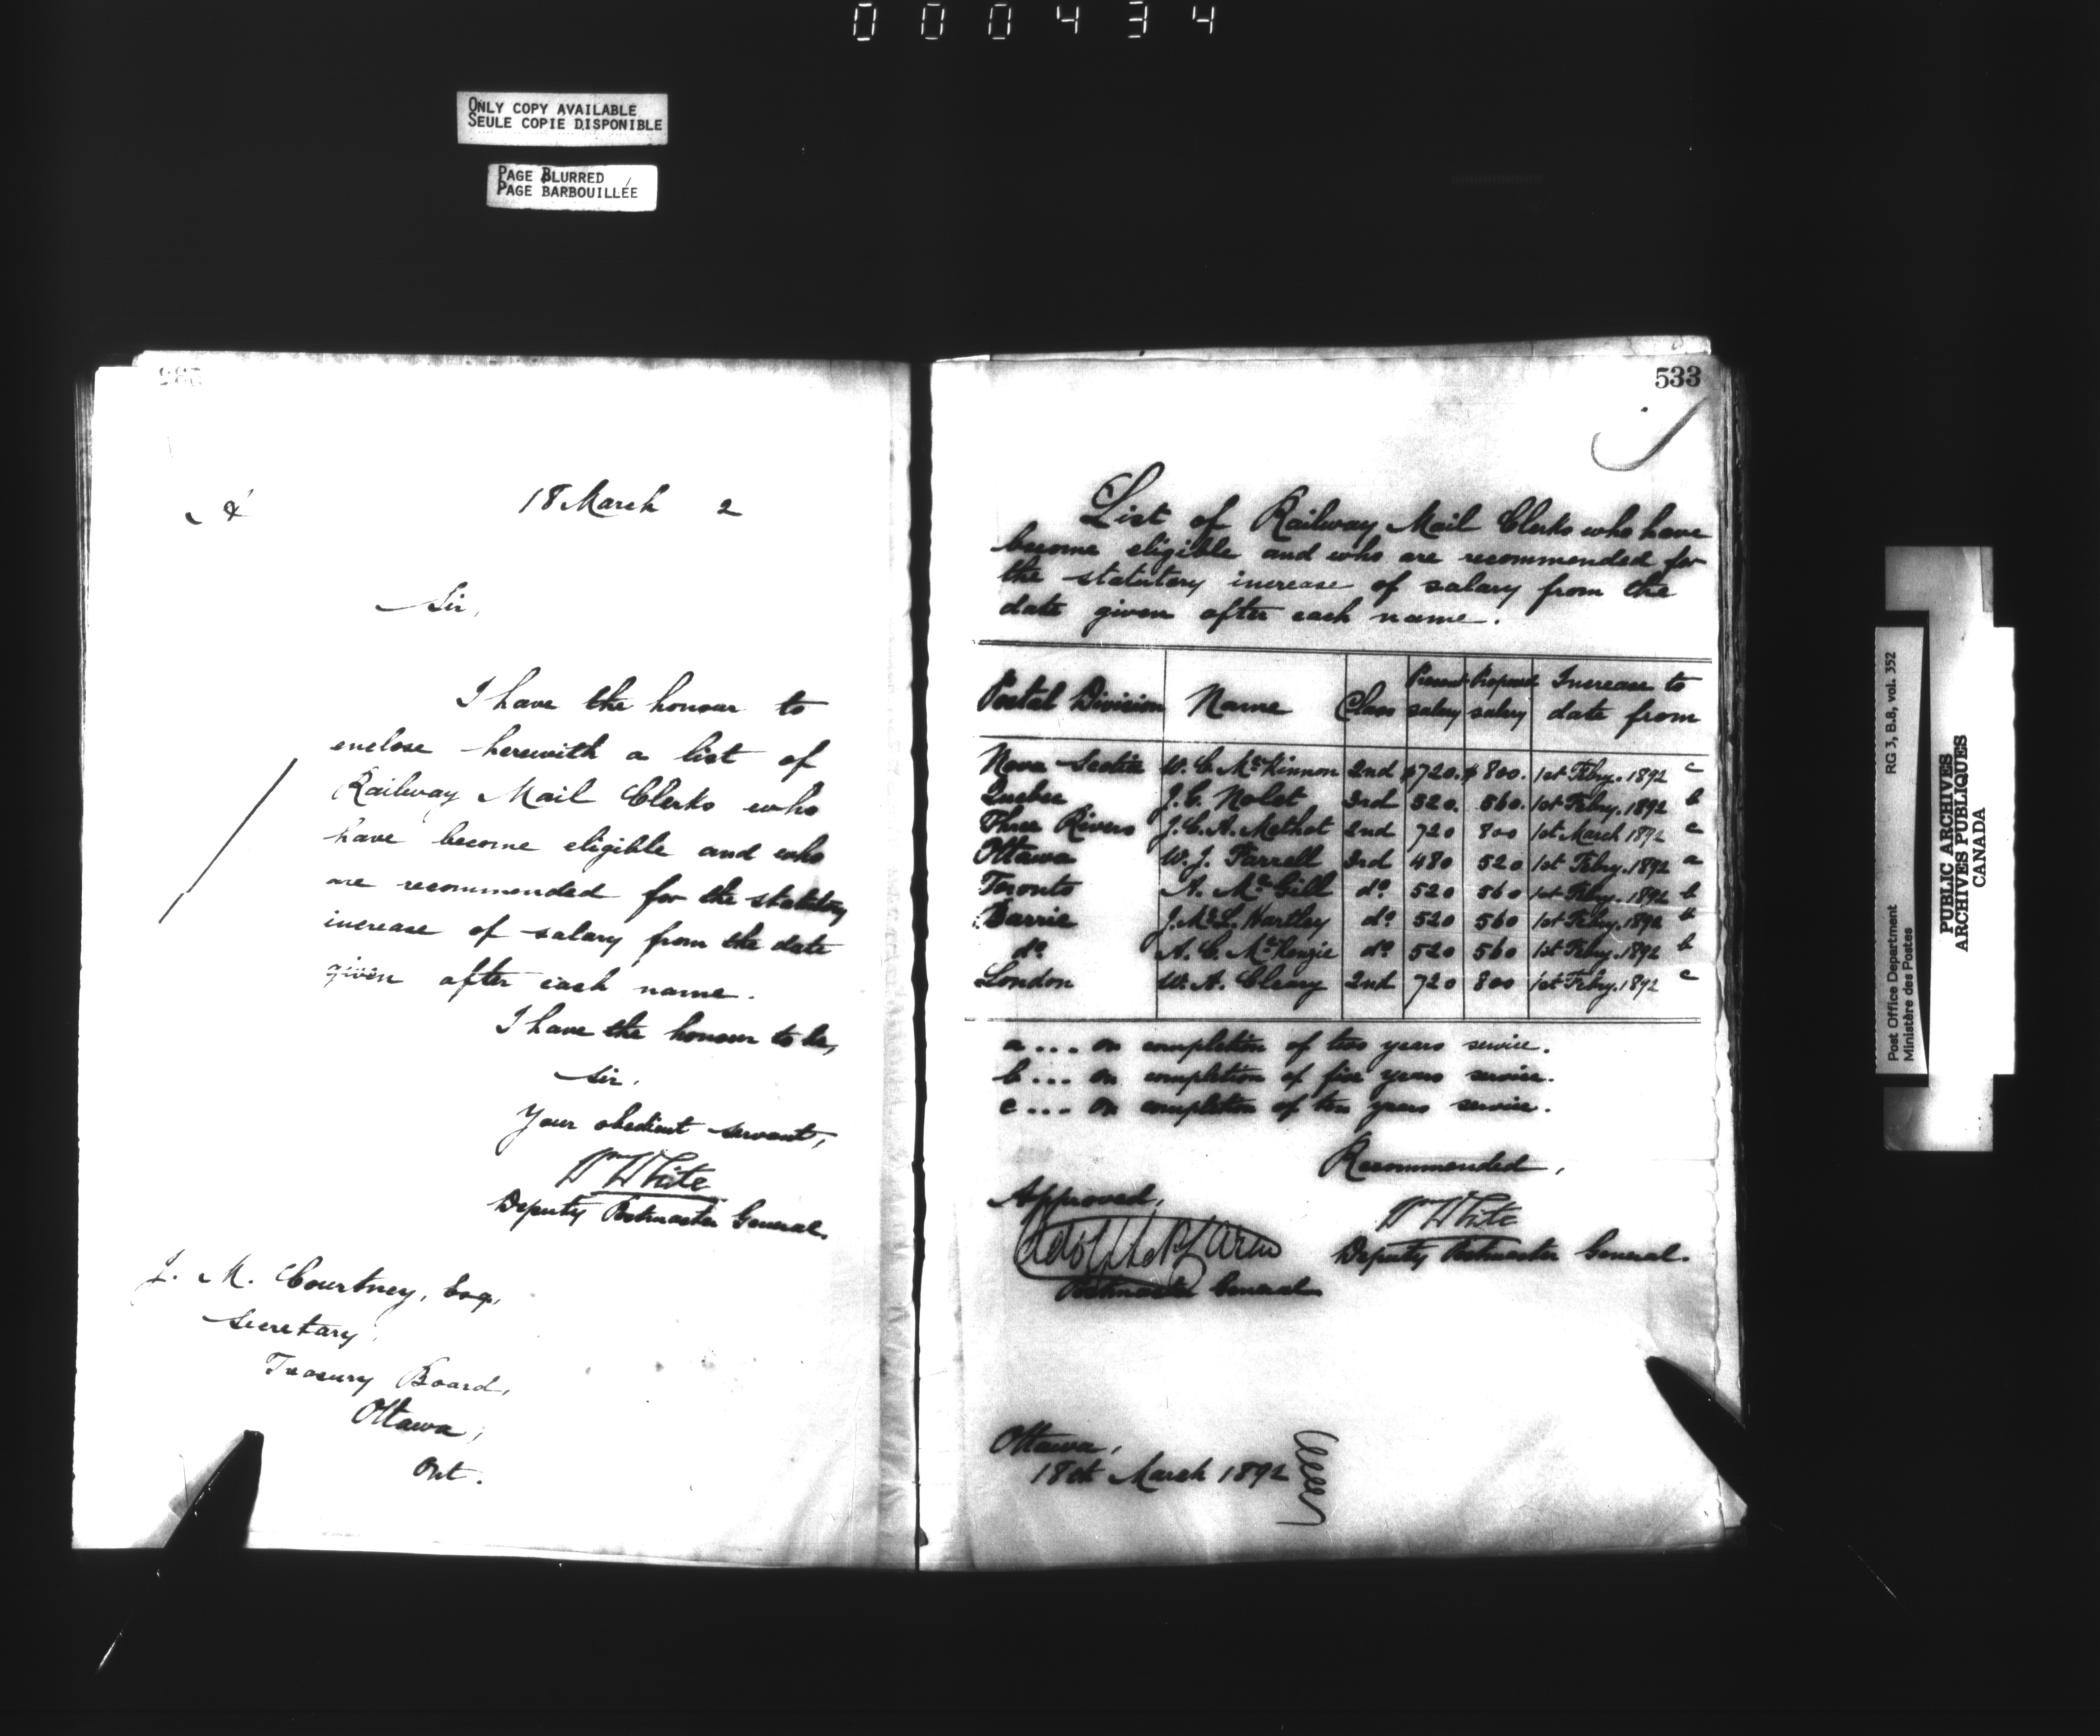 000434
ONLY COPY AVAILABLE
SEULE COPIE DISPONIBLE
PAGE BLURRED
PAGE BARBOUILLÉE
18 March 2
Sir,
I have the honour to
enclose herewith a list of
Railway Mail Clerks who
have become eligible and who
are recommended for the statutory
increase of salary from the date
given after each name.
I have the honour to be,
Sir,
Your obedient servant,
Wm White
Deputy Postmaster General.
J. M. Courtney, Esq,
Secretary,
Treasury Board,
Ottawa,
Ont.
533
List of Railway Mail Clerks who have
become eligible and who are recommended for
the statutory increase of salary from the
date given after each name.
Postal Division Name Class Present salary Proposed salary Increase to date from
Nova Scotia W. C. McKinnon 2nd $720. $800. 1st Febry. 1892 c
Quebec J. C. Nolet 3rd 520. 560. 1st Febry. 1892 b
Three Rivers J. C. A. Methot 2nd 720 800 1st March 1892 c
Ottawa W. J. Farrell 3rd 480 520 1st Febry. 1892 a
Toronto A. McGill do 520 560 1st Febry. 1892 b
Barrie J. McL. Hartley do 520 560 1st Febry. 1892 b
do A. C. McKenzie do 520 560 1st Febry. 1892 b
London W. A. Cleary 2nd 720 800 1st Febry. 1892 c
a ... on completion of two years service.
b ... on completion of five years service.
c ... on completion of ten years service.
Recommended,
Wm White
Deputy Postmaster General.
Approved,
Adolphe P. Caron
Postmaster General
Ottawa,
18th March 1892
Post Office Department RG 3, B.8, vol. 352
Ministère des Postes
PUBLIC ARCHIVES
ARCHIVES PUBLIQUES
CANADA